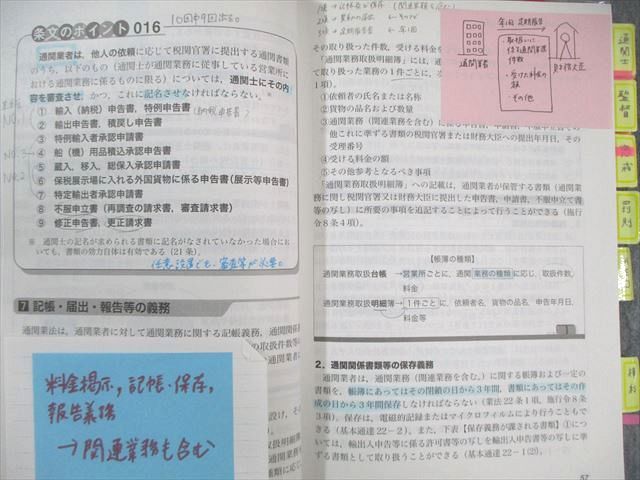 条文のポイント 016
10回中9回出る
通関業者は、他人の依頼に応じて税関官署に提出する通関書類
のうち、以下のもの(通関士が通関業務に従事している営業所に
おける通関業務に係るものに限る)については、通関士にその内
容を審査させ、かつ、これに記名させなければならない。
① 輸入(納税)申告書、特例申告書
(納税申告書)
② 輸出申告書、積戻し申告書
③ 特例輸入者承認申請書
④ 船(機)用品積込承認申告書
⑤ 蔵入、移入、総保入承認申請書
⑥ 保税展示場に入れる外国貨物に係る申告書(展示等申告書)
⑦ 特定輸出者承認申請書
⑧ 不服申立書(再調査の請求書、審査請求書)
⑨ 修正申告書、更正請求書
NO.1
NO.3
NO.2
※ 通関士の記名が求められる書類に記名がなされていなかった場合にお
いても、書類の効力自体は有効である(21条)。
任意設置でも、審査等が必要。
7 記帳・届出・報告等の義務
通関業法は、通関業者に対して通関業務に関する記帳義務、通関関係
料金掲示,記帳・保存,
報告義務
→関連業務も含む
その取り扱った件数、受ける料金を
「通関業務取扱明細簿」には、
て取り扱った業務の1件ごとに、次
①依頼者の氏名または名称
②貨物の品名および数量
③通関業務(関連業務を含む)に係る
他これに準ずる書類の税関官署または財務大臣への提出年月日、その
受理番号
④受ける料金の額
⑤その他参考となるべき事項
「通関業務取扱明細簿」への記載は、通関業者が保管する書類(通関業
務に関し税関官署又は財務大臣に提出した申告書、申請書、不服申立て書
等の写し)に所要の事項を追記することによって行うことができる(施行
令8条4項)。
年1回 定期報告
通関業者
・取扱いに
係る通関業務
件数
・受けた料金の
額
・その他
財務大臣
【帳簿の種類】
通関業務取扱台帳 →営業所ごとに、通関業務の種類に応じ、取扱件数、
料金
通関業務取扱明細簿→1件ごとに、依頼者名、貨物の品名、申告年月日、
料金等
2.通関関係書類等の保存義務
通関業者は、通関業務(関連業務を含む。)に関する帳簿および一定の
書類を、帳簿にあってはその閉鎖の日から3年間、書類にあってはその作
成の日から3年間保存しなければならない(業法22条1項、施行令8条
3項)。保存は、電磁的記録またはマイクロフィルムにより行うこともで
きる(基本通達22-2)。また、下表【保存義務が課される書類】①につ
いては、輸出入申告等に係る許可書等の写しを輸出入申告等の写しに準ず
る書類として取り扱うことができる(基本通達22-1(2))。
57
通関士
監督
懲戒
罰則